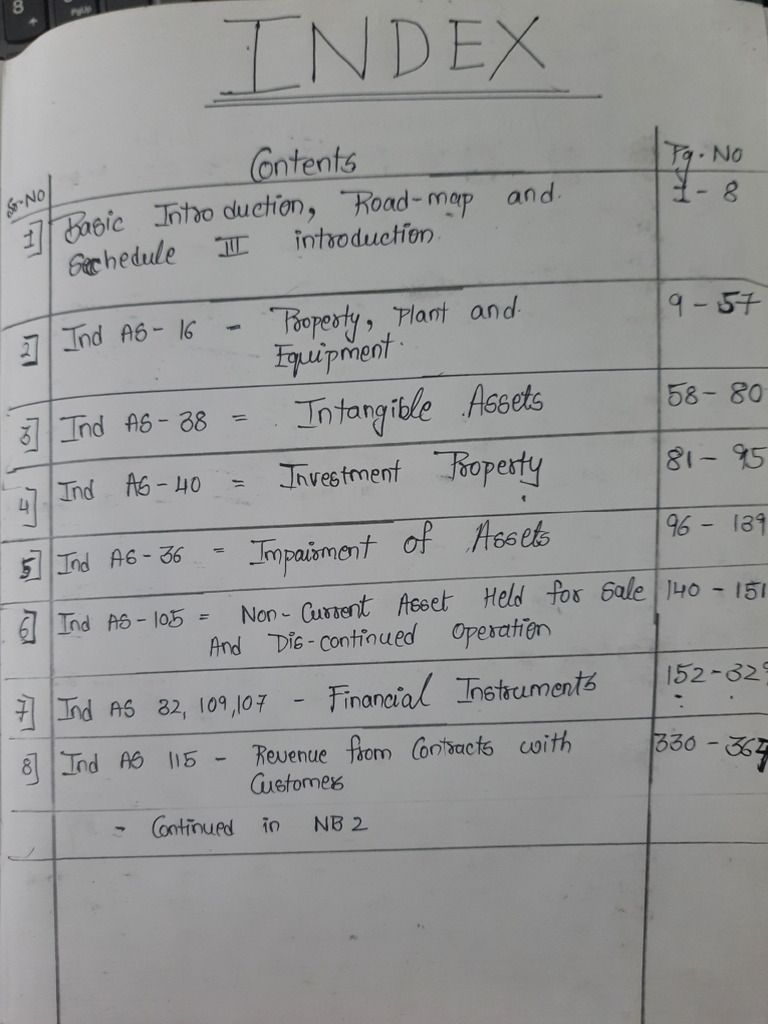 INDEX
Sr.No Contents Pg.No
1] Basic Introduction, Road-map and 1 - 8
Schedule III introduction.
2] Ind AS-16 - Property, Plant and 9 - 57
Equipment.
3] Ind AS-38 = Intangible Assets 58 - 80
4] Ind AS-40 = Investment Property 81 - 95
5] Ind AS-36 = Impairment of Assets 96 - 139
6] Ind AS-105 = Non-Current Asset Held for Sale 140 - 151
And Dis-continued Operation
7] Ind AS 32, 109, 107 - Financial Instruments 152 - 329
8] Ind AS 115 - Revenue from Contracts with 330 - 367
Customers
- Continued in NB 2